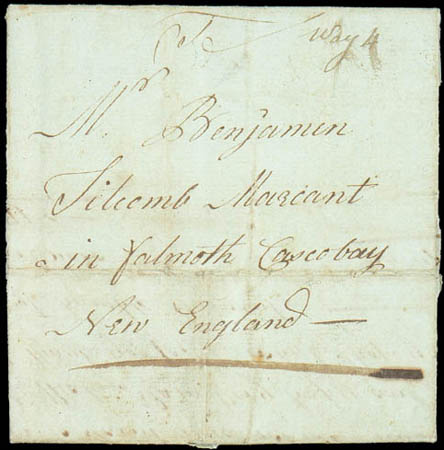 To Way 4
Mr Benjamen
Titcomb Marcant
in falmoth Cascobay
New England